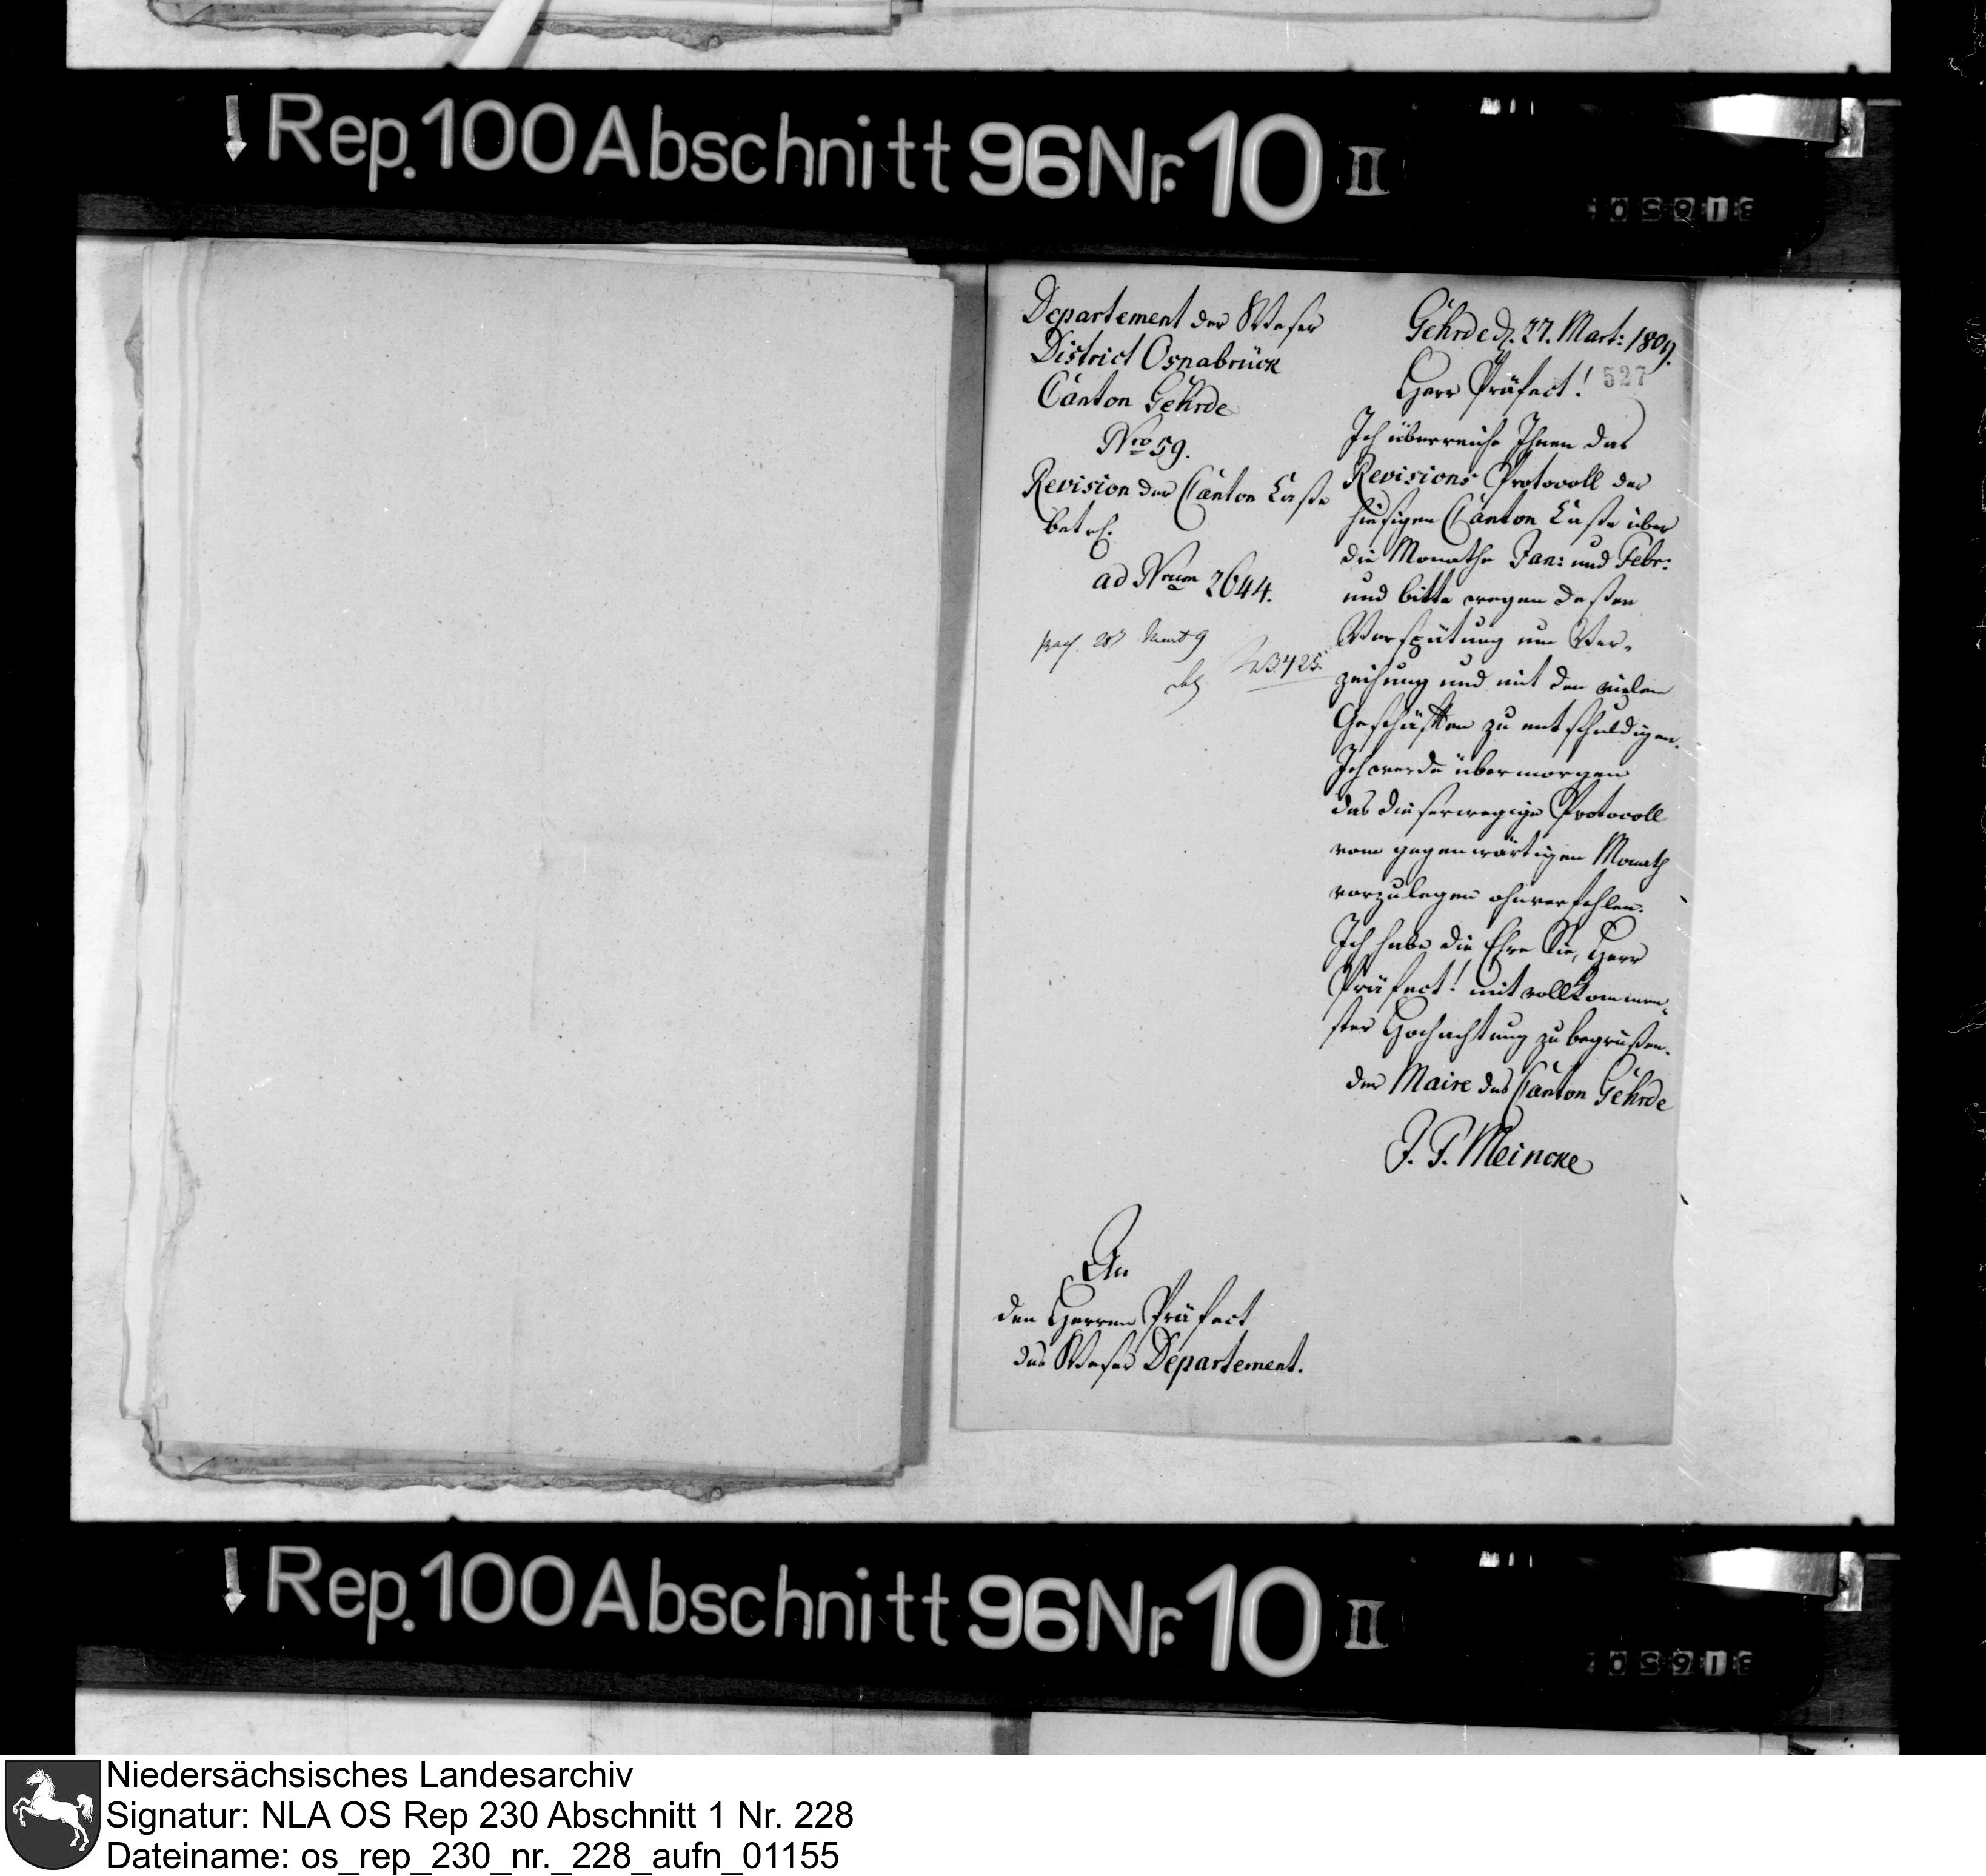 Rep. 100 Abschnitt 96 Nr. 10 II
Departement der Weser
District Osnabrück
Canton Gehrde
Nro 59.
Revision der Canton Casse
betrf.
ad Nrum 2644.
3425.
Gehrde d. 27. Mart: 1809.
527
Herr Präfect!
Ich überreiche Ihnen das
Revisions Protocoll der
hiesigen Canton Casse über
die Monathe Jan: und Febr:
und bitte wegen deßen
Verspätung um Ver-
zeihung und mit den vielen
Geschäften zu entschuldigen.
Ich werde übermorgen
das dieserwegige Protocoll
vom gegenwärtigen Monath
vorzulegen ohnverfehlen.
Ich habe die Ehre Sie, Herr
Präfect! mit vollkommen-
ster Hochachtung zu begrüßen.
der Maire des Canton Gehrde
J. F. Meincke
An
den Herren Präfect
des Weser Departement.
Rep. 100 Abschnitt 96 Nr. 10 II
Niedersächsisches Landesarchiv
Signatur: NLA OS Rep 230 Abschnitt 1 Nr. 228
Dateiname: os_rep_230_nr._228_aufn_01155